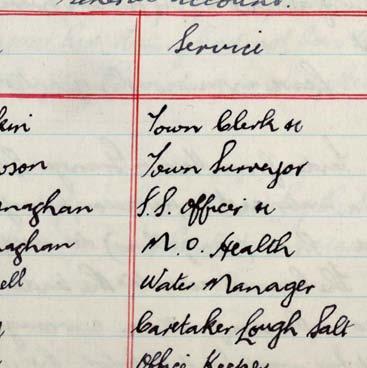 General Account.
Service
Town Clerk &c
Town Surveyor
naghan S.S. Officer &c
naghan M.O. Health
ell Water Manager
Caretaker Lough Salt
Office Keeper